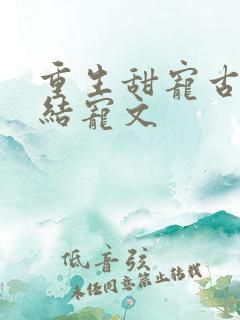 重生甜寵古
結寵文
低音弦
未经同意禁止转载